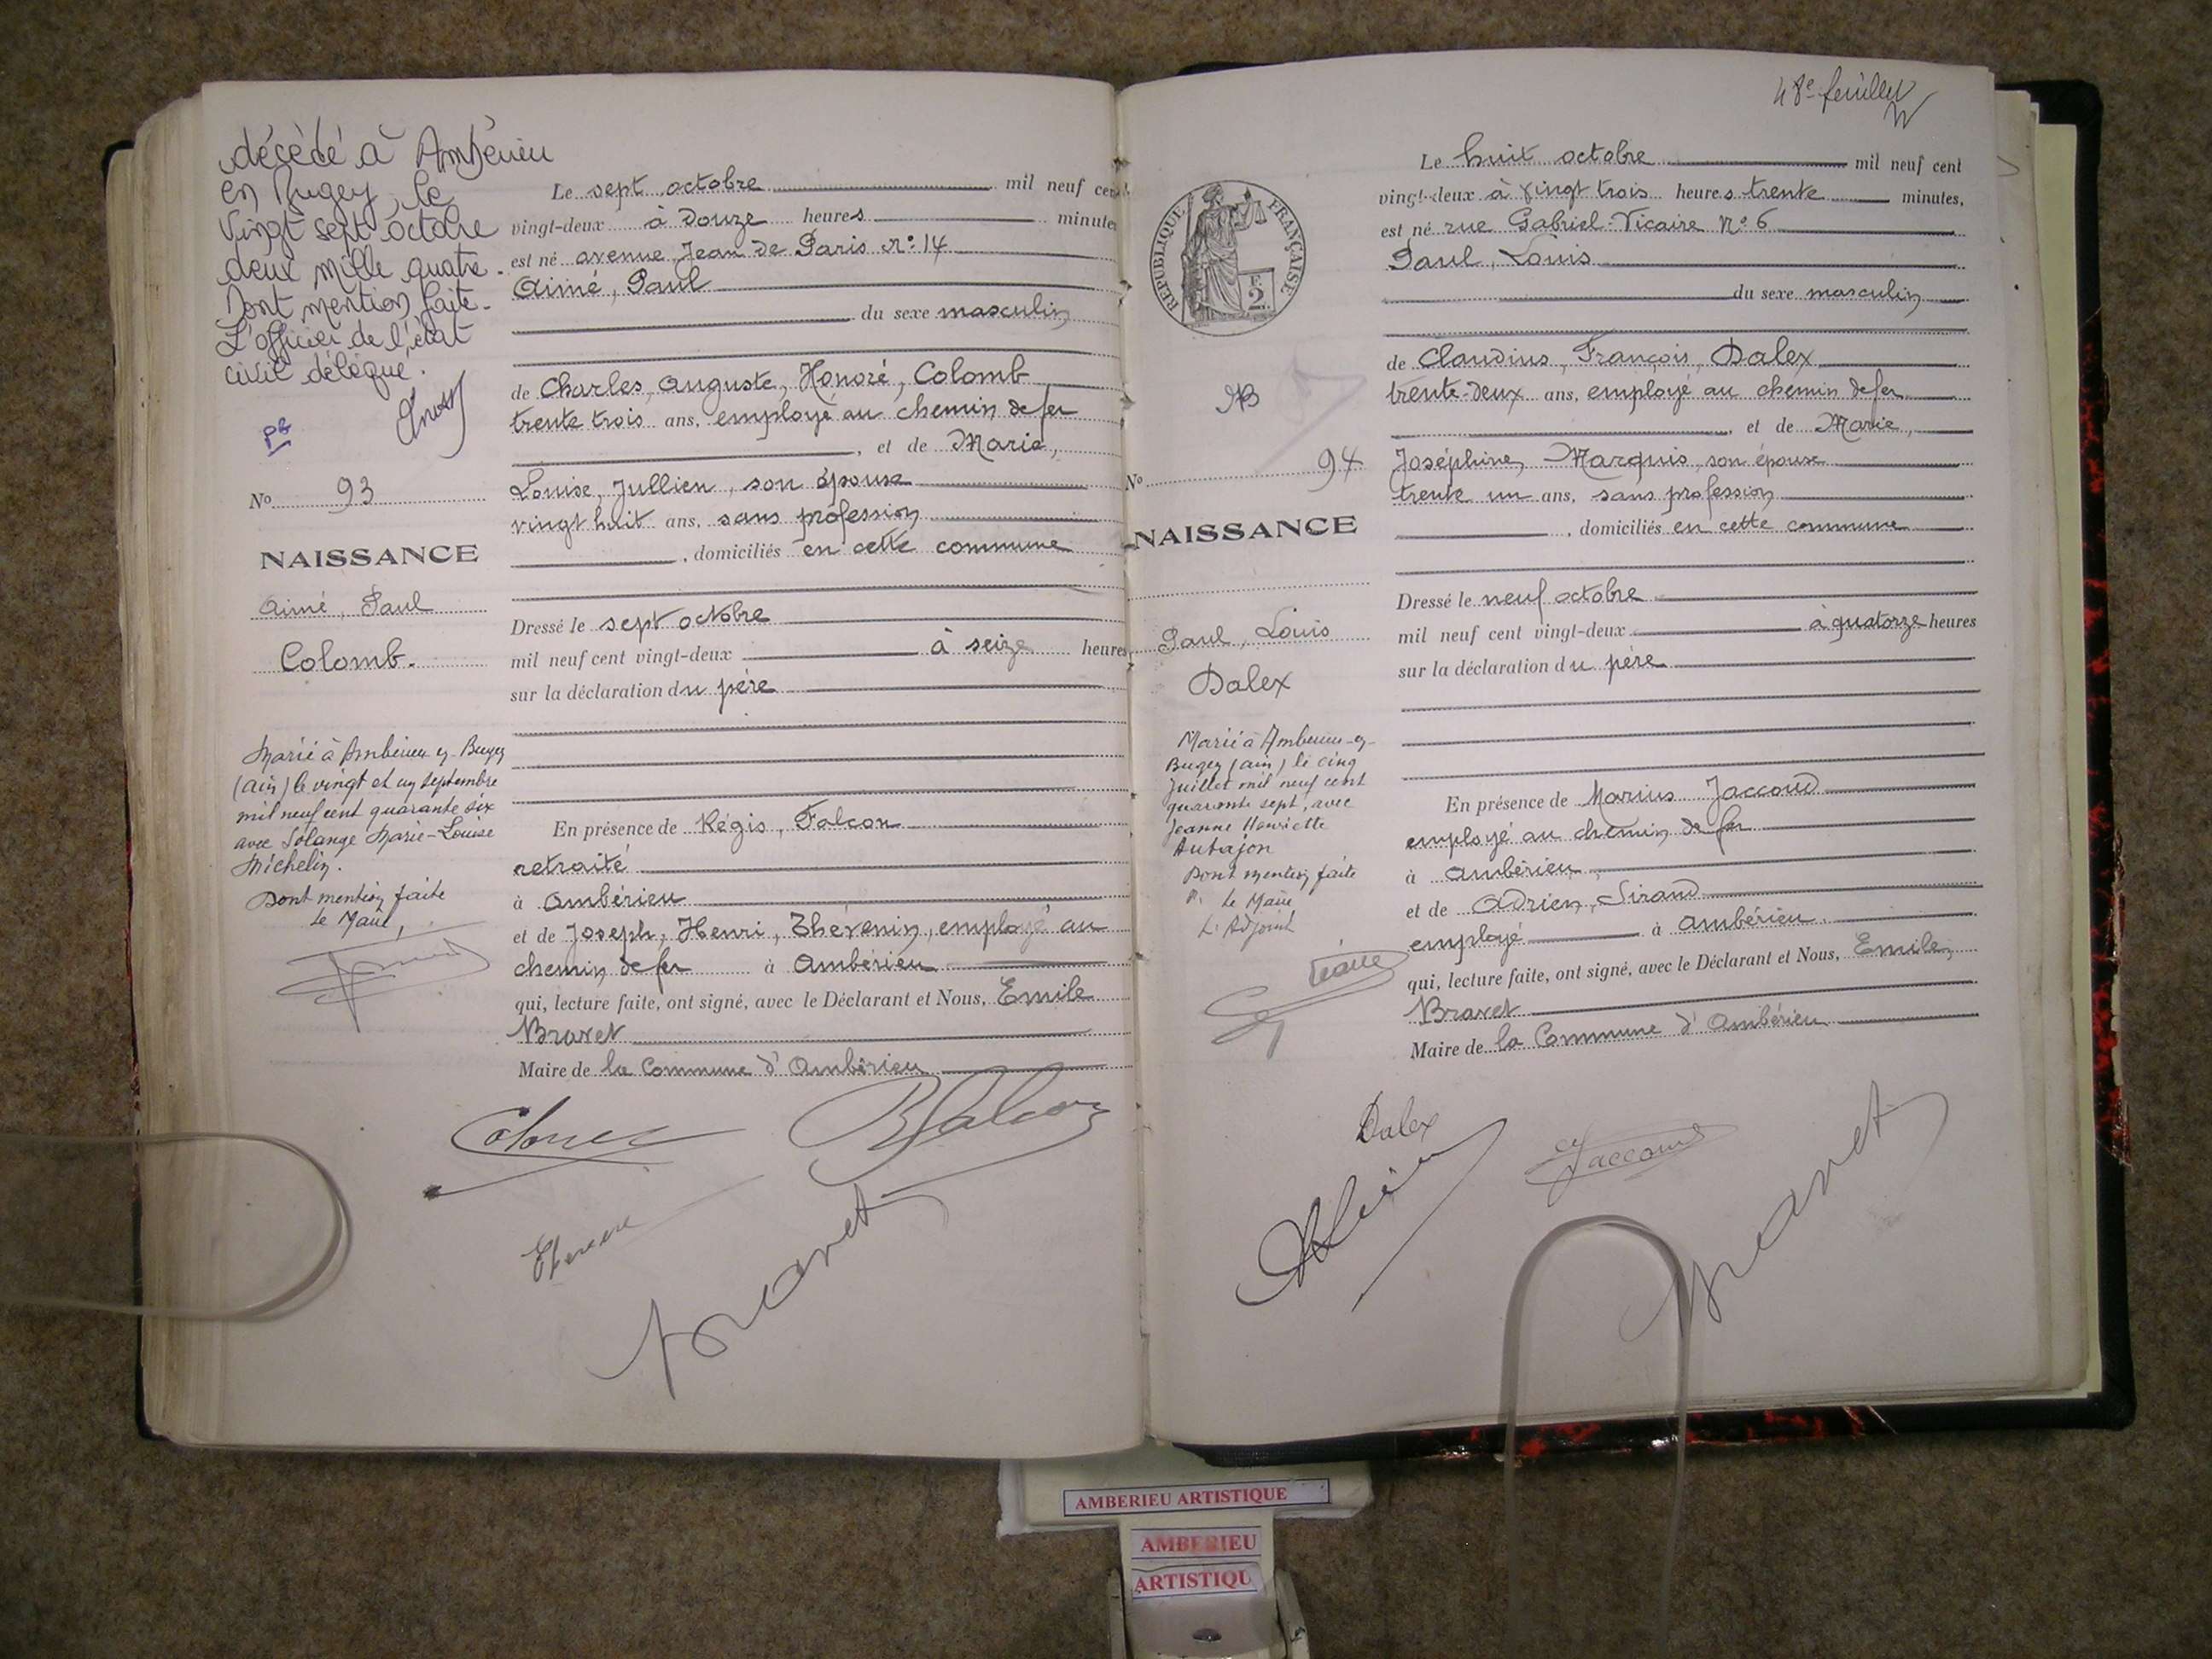 décédé à Ambérieu
en Bugey le
vingt sept octobre
deux mille quatre.
Dont mention faite.
L'officier de l'état
civil délégué.
N° 93
NAISSANCE
Aimé, Paul
Colomb.
Marié à Ambérieu en Bugey
(Ain) le vingt et un septembre
mil neuf cent quarante six
avec Solange Marie-Louise
Michelin.
Dont mention faite
Le Maire,
Le sept octobre mil neuf cent
vingt-deux à douze heures minutes
est né avenue Jean de Paris N° 14
Aimé, Paul
du sexe masculin
de Charles, Auguste, Honoré, Colomb
trente trois ans, employé au chemin de fer
, et de Marie,
Louise, Jullien, son épouse
vingt huit ans, sans profession
, domiciliés en cette commune
Dressé le sept octobre
mil neuf cent vingt-deux à seize heures
sur la déclaration du père
En présence de Régis, Falcon
retraité
à Ambérieu
et de Joseph, Henri, Thévenin, employé au
chemin de fer à Ambérieu
qui, lecture faite, ont signé, avec le Déclarant et Nous, Emile
Bravet
Maire de la Commune d'Ambérieu
Colomb
RFalcon
Bravet
48e feuillet
REPUBLIQUE FRANÇAISE
2 F.
N° 94
NAISSANCE
Paul, Louis
Dalex
Marié à Ambérieu-en-
Bugey (Ain) le cinq
Juillet mil neuf cent
quarante sept, avec
Jeanne Henriette
Aubajon
Dont mention faite
P. le Maire
L'Adjoint
Le huit octobre mil neuf cent
vingt-deux à vingt trois heures trente minutes,
est né rue Gabriel-Vicaire N° 6
Paul, Louis
du sexe masculin
de Claudius, François, Dalex
trente-deux ans, employé au chemin de fer
, et de Marie,
Joséphine, Marquis, son épouse
trente un ans, sans profession
, domiciliés en cette commune
Dressé le neuf octobre
mil neuf cent vingt-deux à quatorze heures
sur la déclaration du père
En présence de Marius Jaccoud
employé au chemin de fer
à Ambérieu
et de Adrien, Sirand
employé à Ambérieu
qui, lecture faite, ont signé, avec le Déclarant et Nous, Emile,
Bravet
Maire de la Commune d'Ambérieu
Dalex
Jaccoud
Bravet
AMBERIEU ARTISTIQUE
AMBERIEU
ARTISTIQU